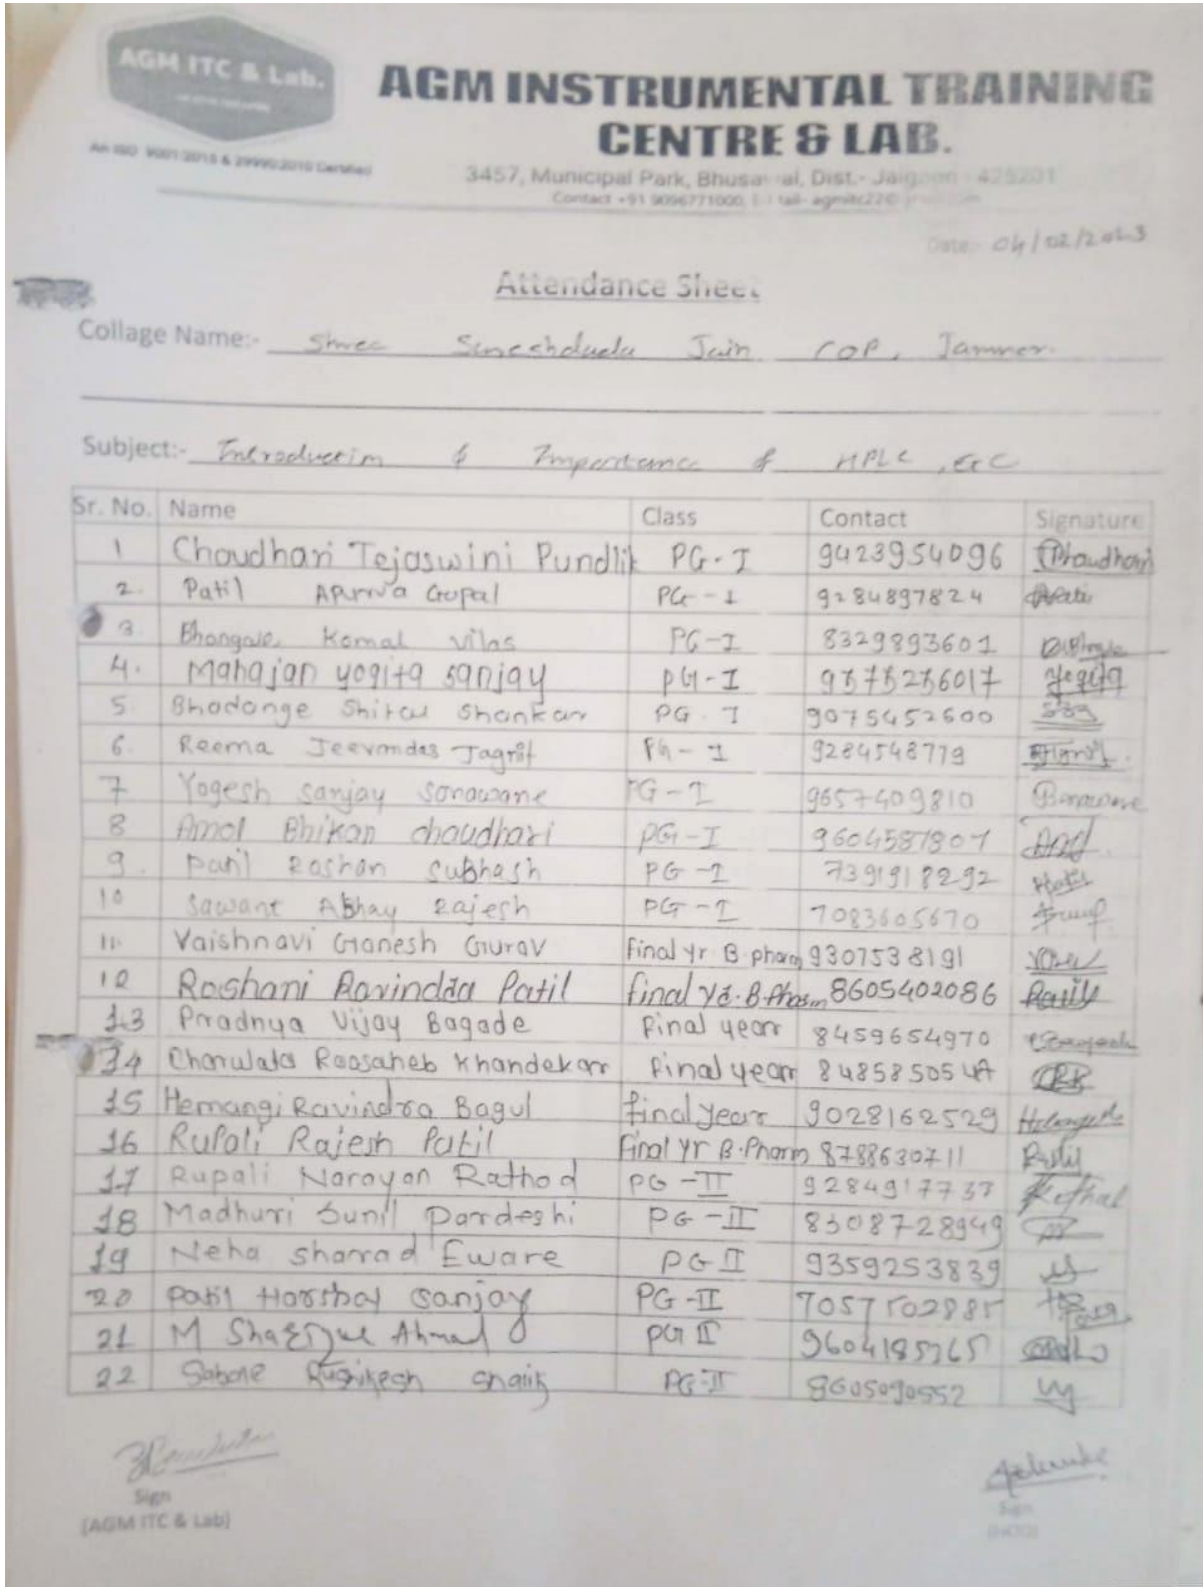 AGM ITC & Lab.
An ISO 9001:2015 & 29990:2010 Certified
AGM INSTRUMENTAL TRAINING
CENTRE & LAB.
3457, Municipal Park, Bhusawal, Dist.- Jalgaon - 425201
Contact +91 9096771000,
Date:- 04/02/2023
Attendance Sheet
Collage Name:- Shree Sureshdada Jain COP, Jamner.
Subject:- Introduction & Importance of HPLC, etc
Sr. No. Name Class Contact Signature
1 Choudhari Tejaswini Pundlik PG-I 9423954096 Choudhari
2. Patil Apurva Gopal PG-I 9284897824
3. Bhangale Komal Vilas PG-I 8329893601
4. Mahajan yogita sanjay PG-I Yogita
5. Bhadange Shital Shankar PG-I 9075452600
6. Reema Jeevandas Jagrit PG-I 9284548779
7 Yogesh Sanjay Sonawane PG-I 9657409810 Sonawane
8 Amol Bhikan choudhari PG-I 9604587807
9. Patil Roshan Subhash PG-I 7391918292 Patil
10 Sawant Abhay Rajesh PG-I 7083605670
11. Vaishnavi Ganesh Gurav Final Yr B.pharm 9307538191
12 Roshani Ravindra Patil final Yr. B.Pharm 8605402086 Patil
13 Pradnya Vijay Bagade Final year 8459654970
14 Charulata Raosaheb Khandekar Final year
15 Hemangi Ravindra Bagul final year 9028162529
16 Rupali Rajesh Patil Final Yr B.Pharm 8788630711
17 Rupali Narayan Rathod PG-II 9284917737 Rathod
18 Madhuri Sunil Pardeshi PG-II 8308728949
19 Neha Sharad Eware PG II 9359253839
20 Patil Harshal Sanjay PG-II
21 M Ahmad PG II
22 Rushikesh PG-II 8605090552
Sign
(AGM ITC & Lab)
Sign
(HOD)